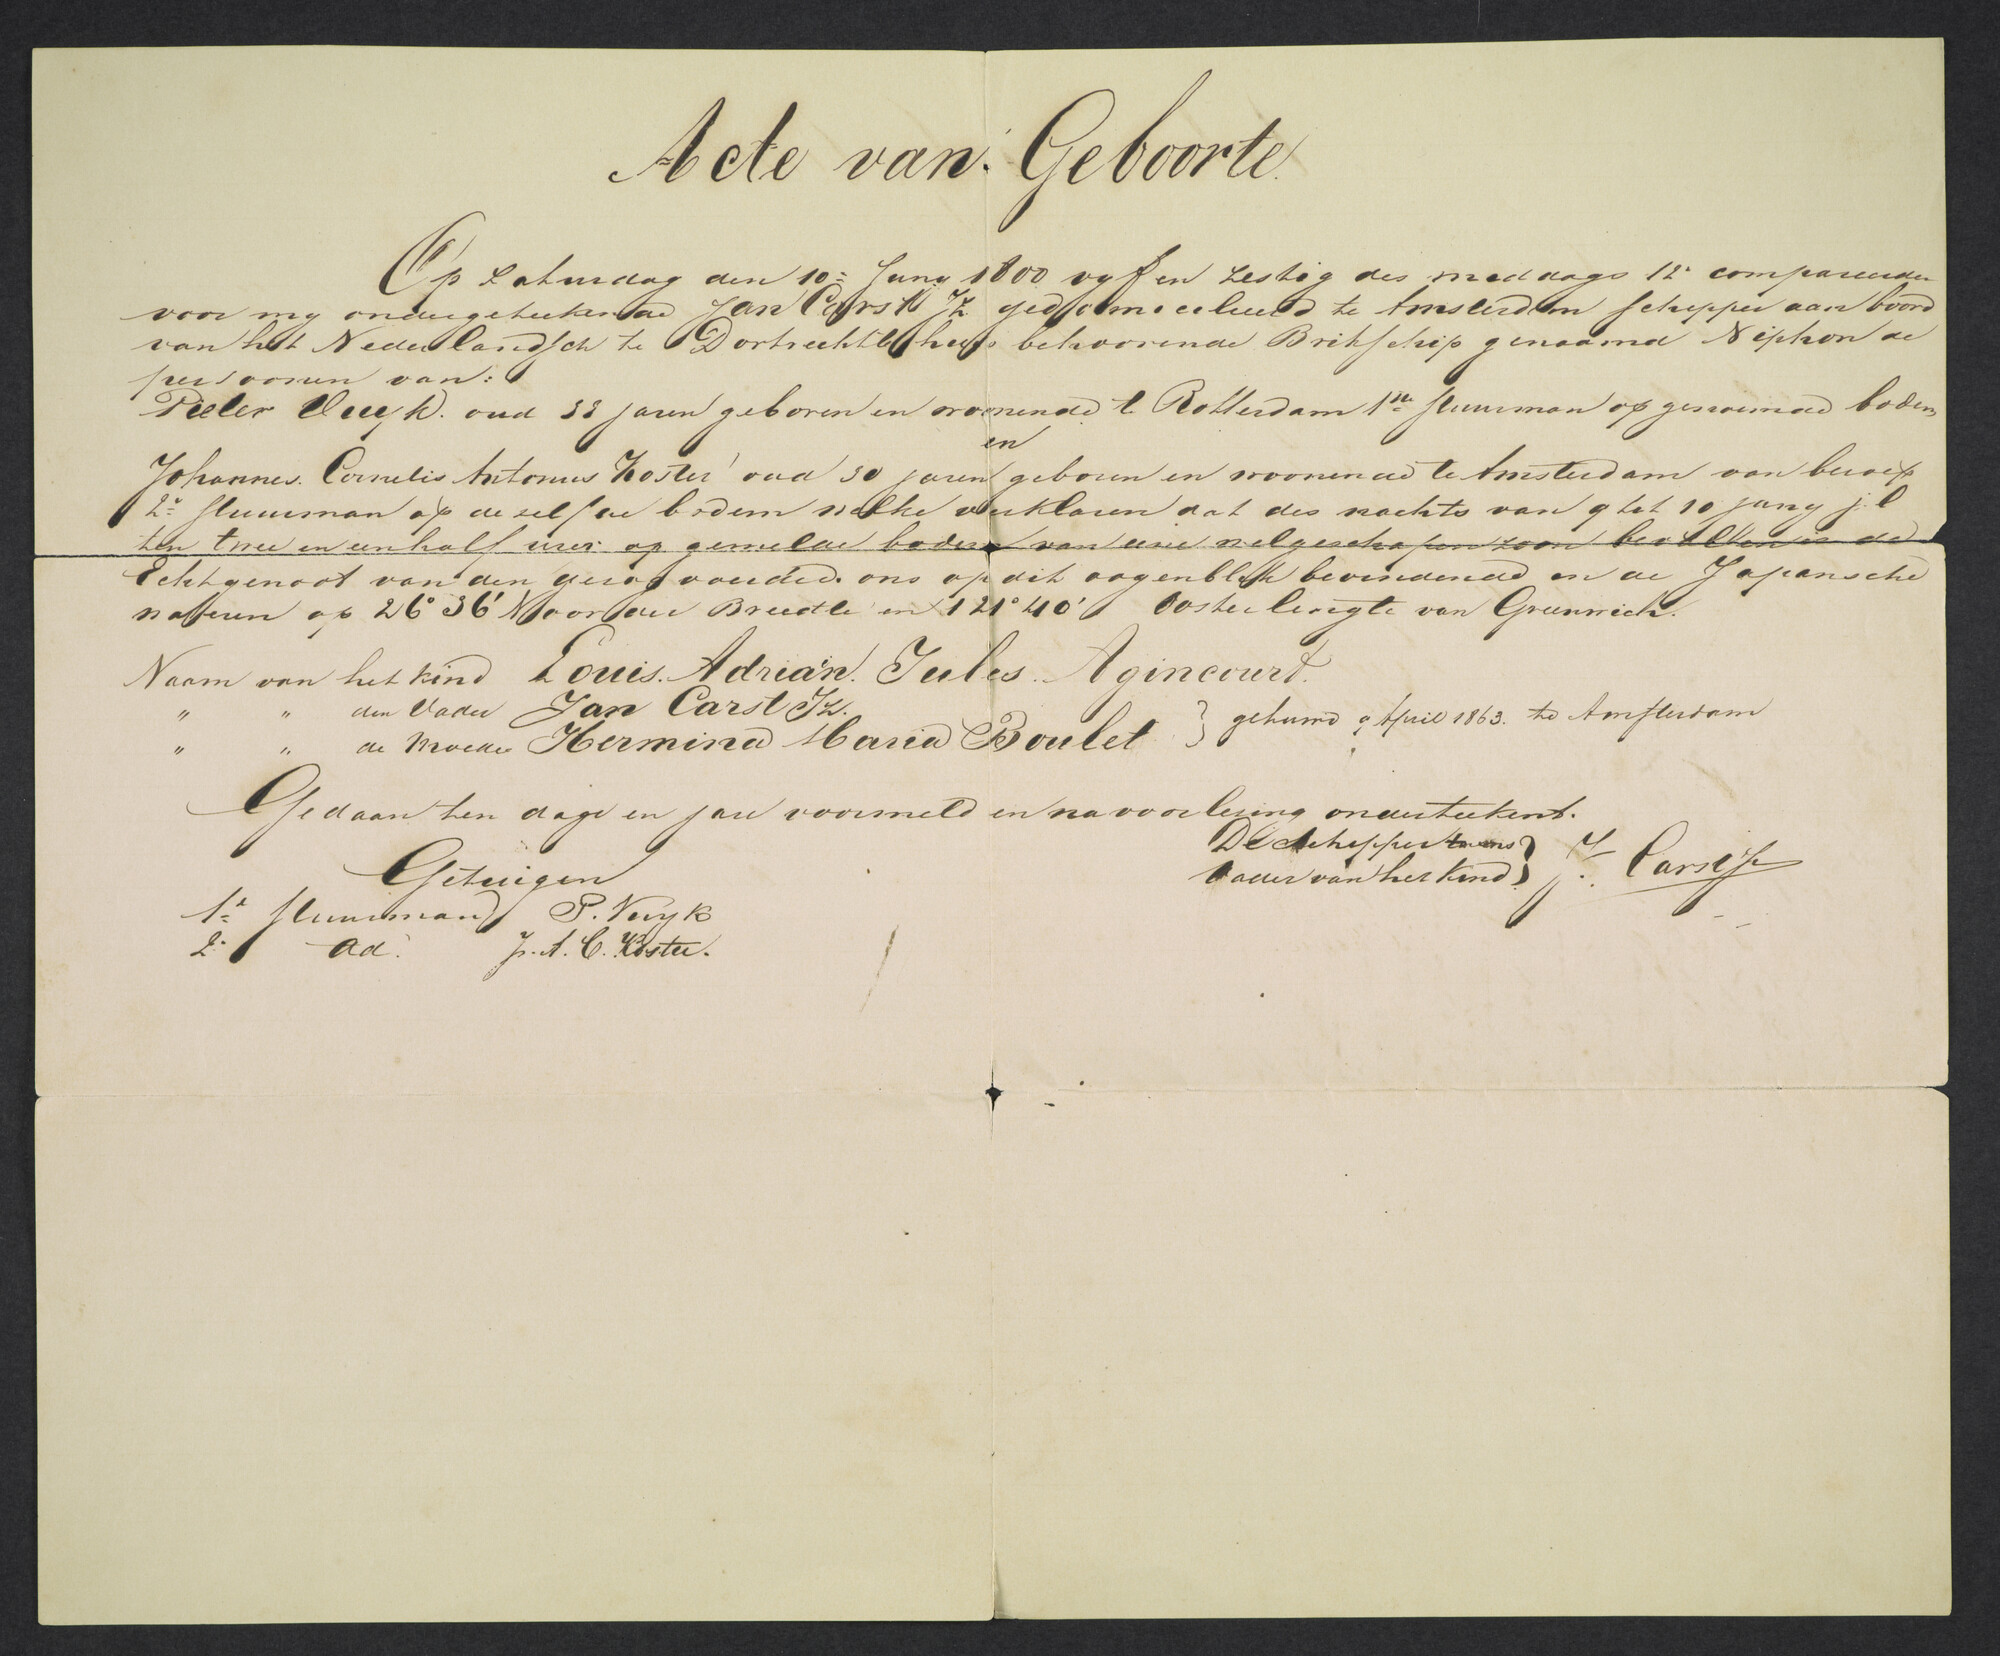 Acte van Geboorte.
Op Zaturdag den 10n Juny 1800 vyf en zestig des middags 12u compareerden
voor my ondergeteekende Jan Carst Jz gedomicileerd te Amsterdam schipper aan boord
van het Nederlandsch te Dortrecht t'huis behoorende Brikschip genaamd Niphon de
persoonen van:
Pieter Vuyk. oud 33 jaren geboren en woonende te Rotterdam 1ste stuurman op genoemde bodem
en
Johannes. Cornelis Antonius Koster oud 30 jaren geboren en woonende te Amsterdam van beroep
2e stuurman op dezelfde bodem welke verklaren dat des nachts van 9 tot 10 juny j.l
ten twee en een half uur op gemelde bodem van eene welgeschapen zoon bevallen is de
Echtgenoot van den gezagvoerder. ons op dit oogenblik bevindende in de Japansche
wateren op 26° 36' Noorder Breedte en 121° 40' Ooster lengte van Greenwich.
Naam van het kind Louis. Adriaan. Jules. Agincourt.
" " den Vader Jan Carst Jz.
" " de Moeder Hermina Maria Boulet } gehuwd 9 April 1863. te Amsterdam
Gedaan ten dage en jare voormeld en na voorlezing onderteekent.
De schipper tevens
Vader van het kind } J. Carst Jz
Getuigen
1e stuurman P. Vuyk
2e " ad. J. A. C. Koster.